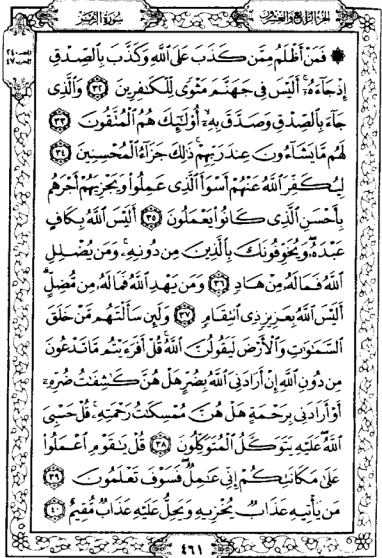 الجزء الرابع والعشرون
سورة الزمر
۞ فَمَنْ أَظْلَمُ مِمَّن كَذَبَ عَلَى اللَّهِ وَكَذَّبَ بِالصِّدْقِ
إِذْ جَاءَهُ أَلَيْسَ فِي جَهَنَّمَ مَثْوًى لِّلْكَافِرِينَ ٣٢ وَالَّذِي
جَاءَ بِالصِّدْقِ وَصَدَّقَ بِهِ أُولَٰئِكَ هُمُ الْمُتَّقُونَ ٣٣
لَهُم مَّا يَشَاءُونَ عِندَ رَبِّهِمْ ذَٰلِكَ جَزَاءُ الْمُحْسِنِينَ ٣٤
لِيُكَفِّرَ اللَّهُ عَنْهُمْ أَسْوَأَ الَّذِي عَمِلُوا وَيَجْزِيَهُمْ أَجْرَهُم
بِأَحْسَنِ الَّذِي كَانُوا يَعْمَلُونَ ٣٥ أَلَيْسَ اللَّهُ بِكَافٍ
عَبْدَهُ وَيُخَوِّفُونَكَ بِالَّذِينَ مِن دُونِهِ وَمَن يُضْلِلِ
اللَّهُ فَمَا لَهُ مِنْ هَادٍ ٣٦ وَمَن يَهْدِ اللَّهُ فَمَا لَهُ مِن مُّضِلٍّ
أَلَيْسَ اللَّهُ بِعَزِيزٍ ذِي انتِقَامٍ ٣٧ وَلَئِن سَأَلْتَهُم مَّنْ خَلَقَ
السَّمَاوَاتِ وَالْأَرْضَ لَيَقُولُنَّ اللَّهُ قُلْ أَفَرَأَيْتُم مَّا تَدْعُونَ
مِن دُونِ اللَّهِ إِنْ أَرَادَنِيَ اللَّهُ بِضُرٍّ هَلْ هُنَّ كَاشِفَاتُ ضُرِّهِ
أَوْ أَرَادَنِي بِرَحْمَةٍ هَلْ هُنَّ مُمْسِكَاتُ رَحْمَتِهِ قُلْ حَسْبِيَ
اللَّهُ عَلَيْهِ يَتَوَكَّلُ الْمُتَوَكِّلُونَ ٣٨ قُلْ يَا قَوْمِ اعْمَلُوا
عَلَىٰ مَكَانَتِكُمْ إِنِّي عَامِلٌ فَسَوْفَ تَعْلَمُونَ ٣٩
مَن يَأْتِيهِ عَذَابٌ يُخْزِيهِ وَيَحِلُّ عَلَيْهِ عَذَابٌ مُّقِيمٌ ٤٠
٤٦١